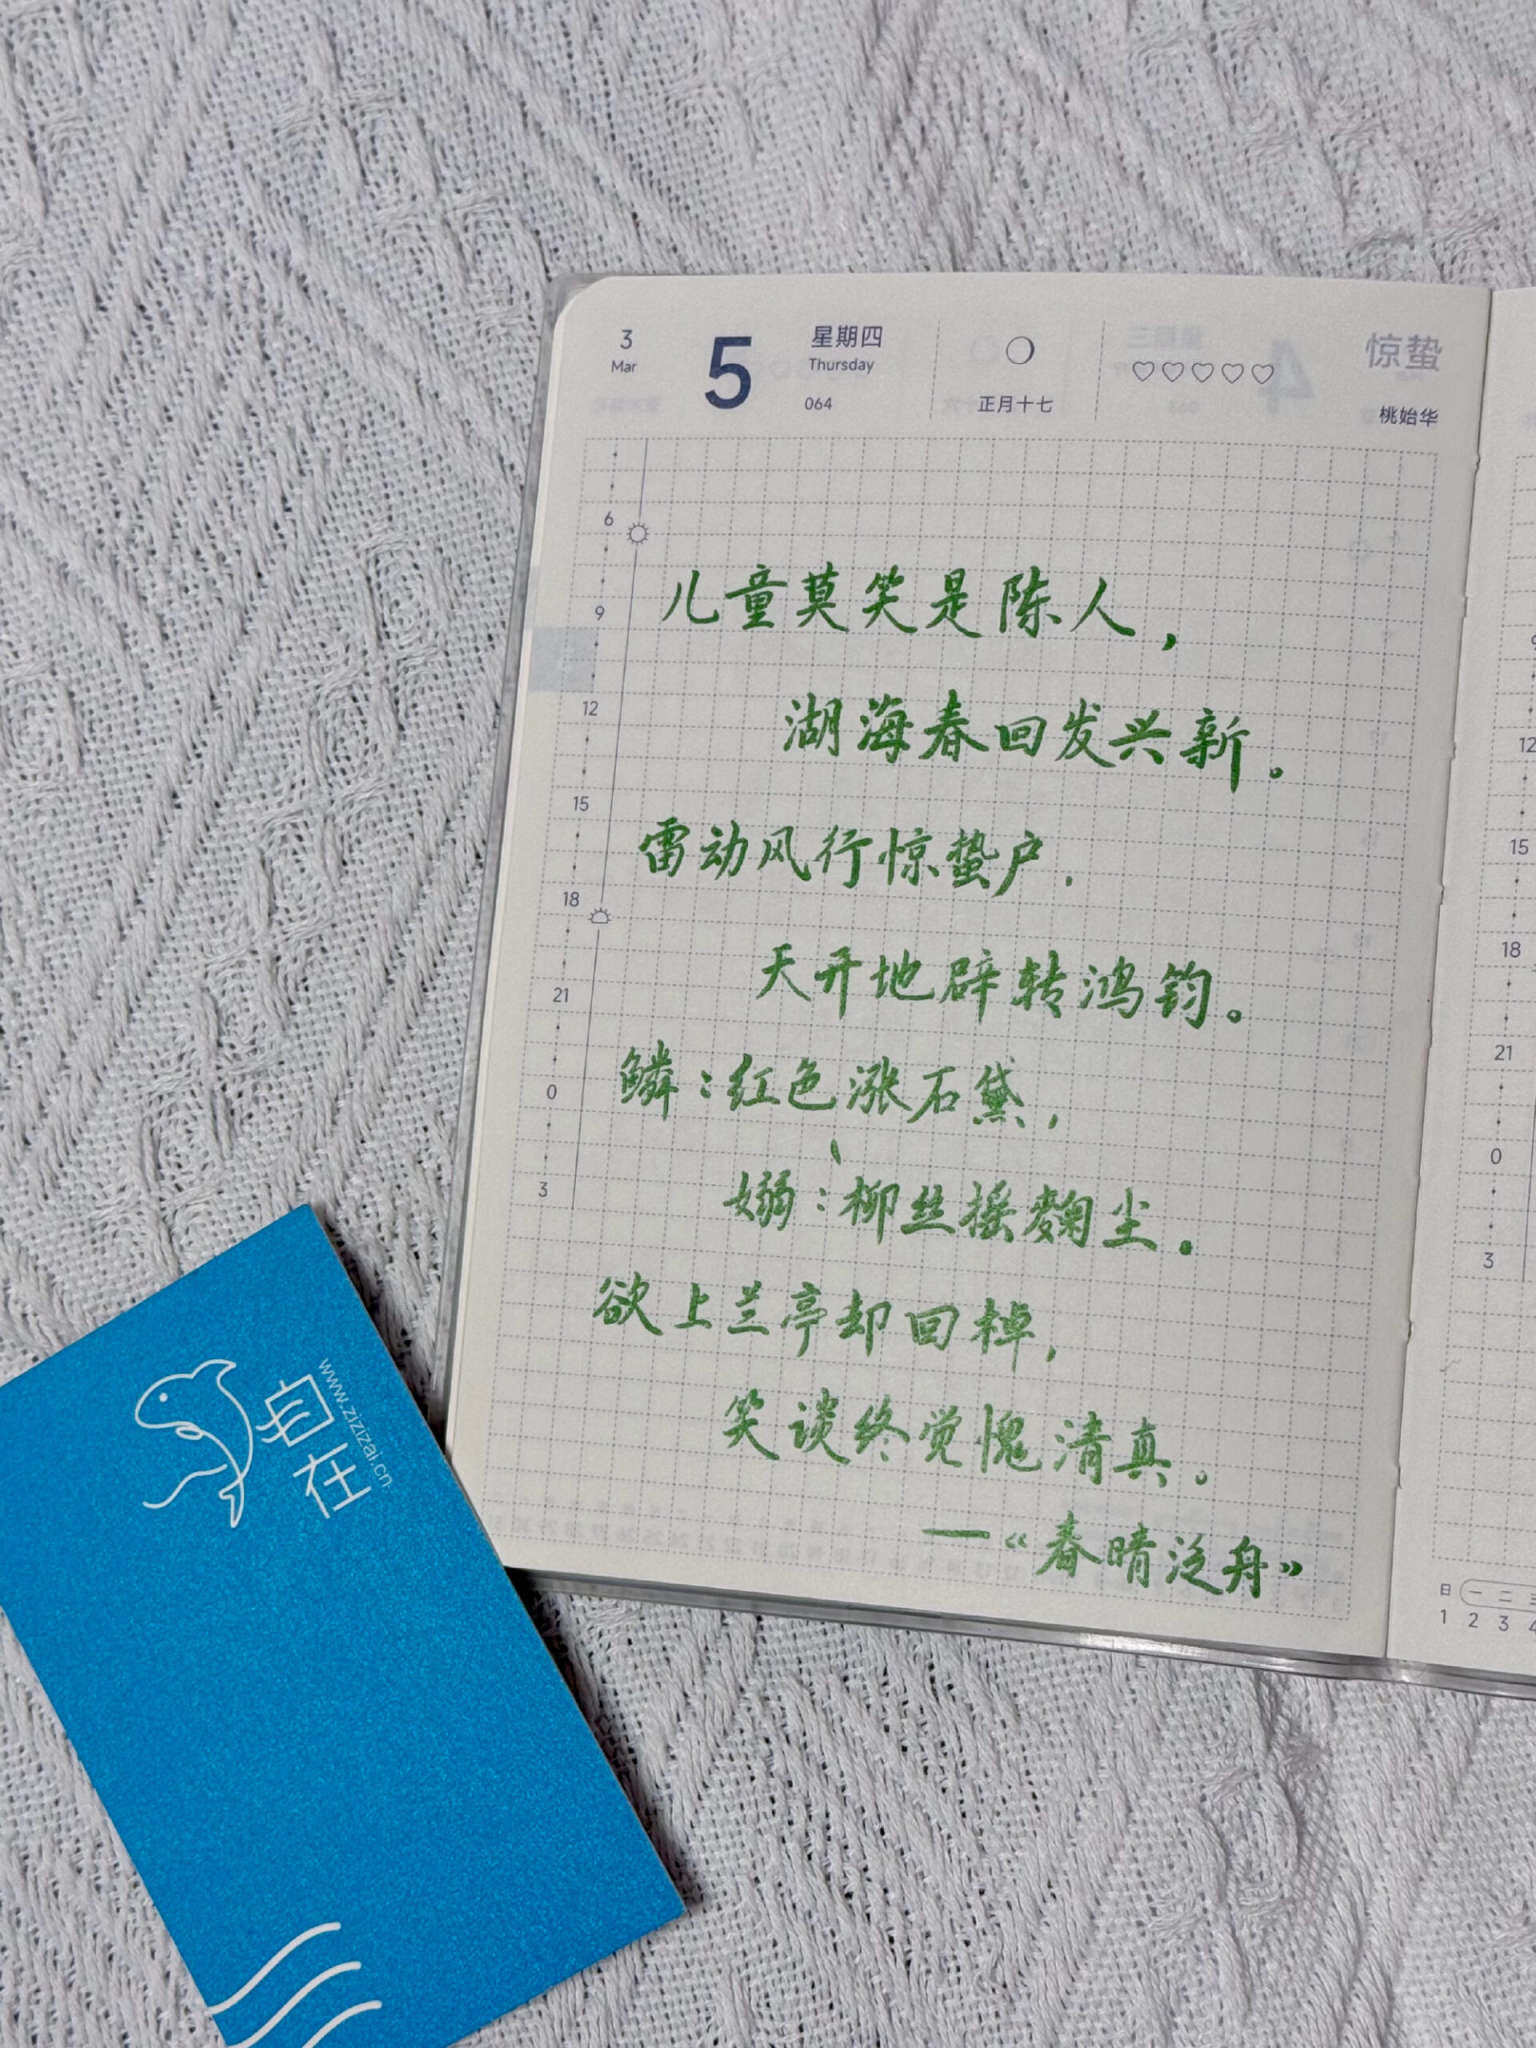 3
Mar
5
星期四
Thursday
064
正月十七
惊蛰
桃始华
6
9
12
15
18
21
0
3
儿童莫笑是陈人，
湖海春回发兴新。
雷动风行惊蛰户，
天开地辟转鸿钧。
鳞：红色涨石黛，
嫋：柳丝摇麴尘。
欲上兰亭却回棹，
笑谈终觉愧清真。
—《春晴泛舟》
9
12
15
18
21
0
3
日 一 二 三
1 2 3 4
自在
www.zizizai.cn